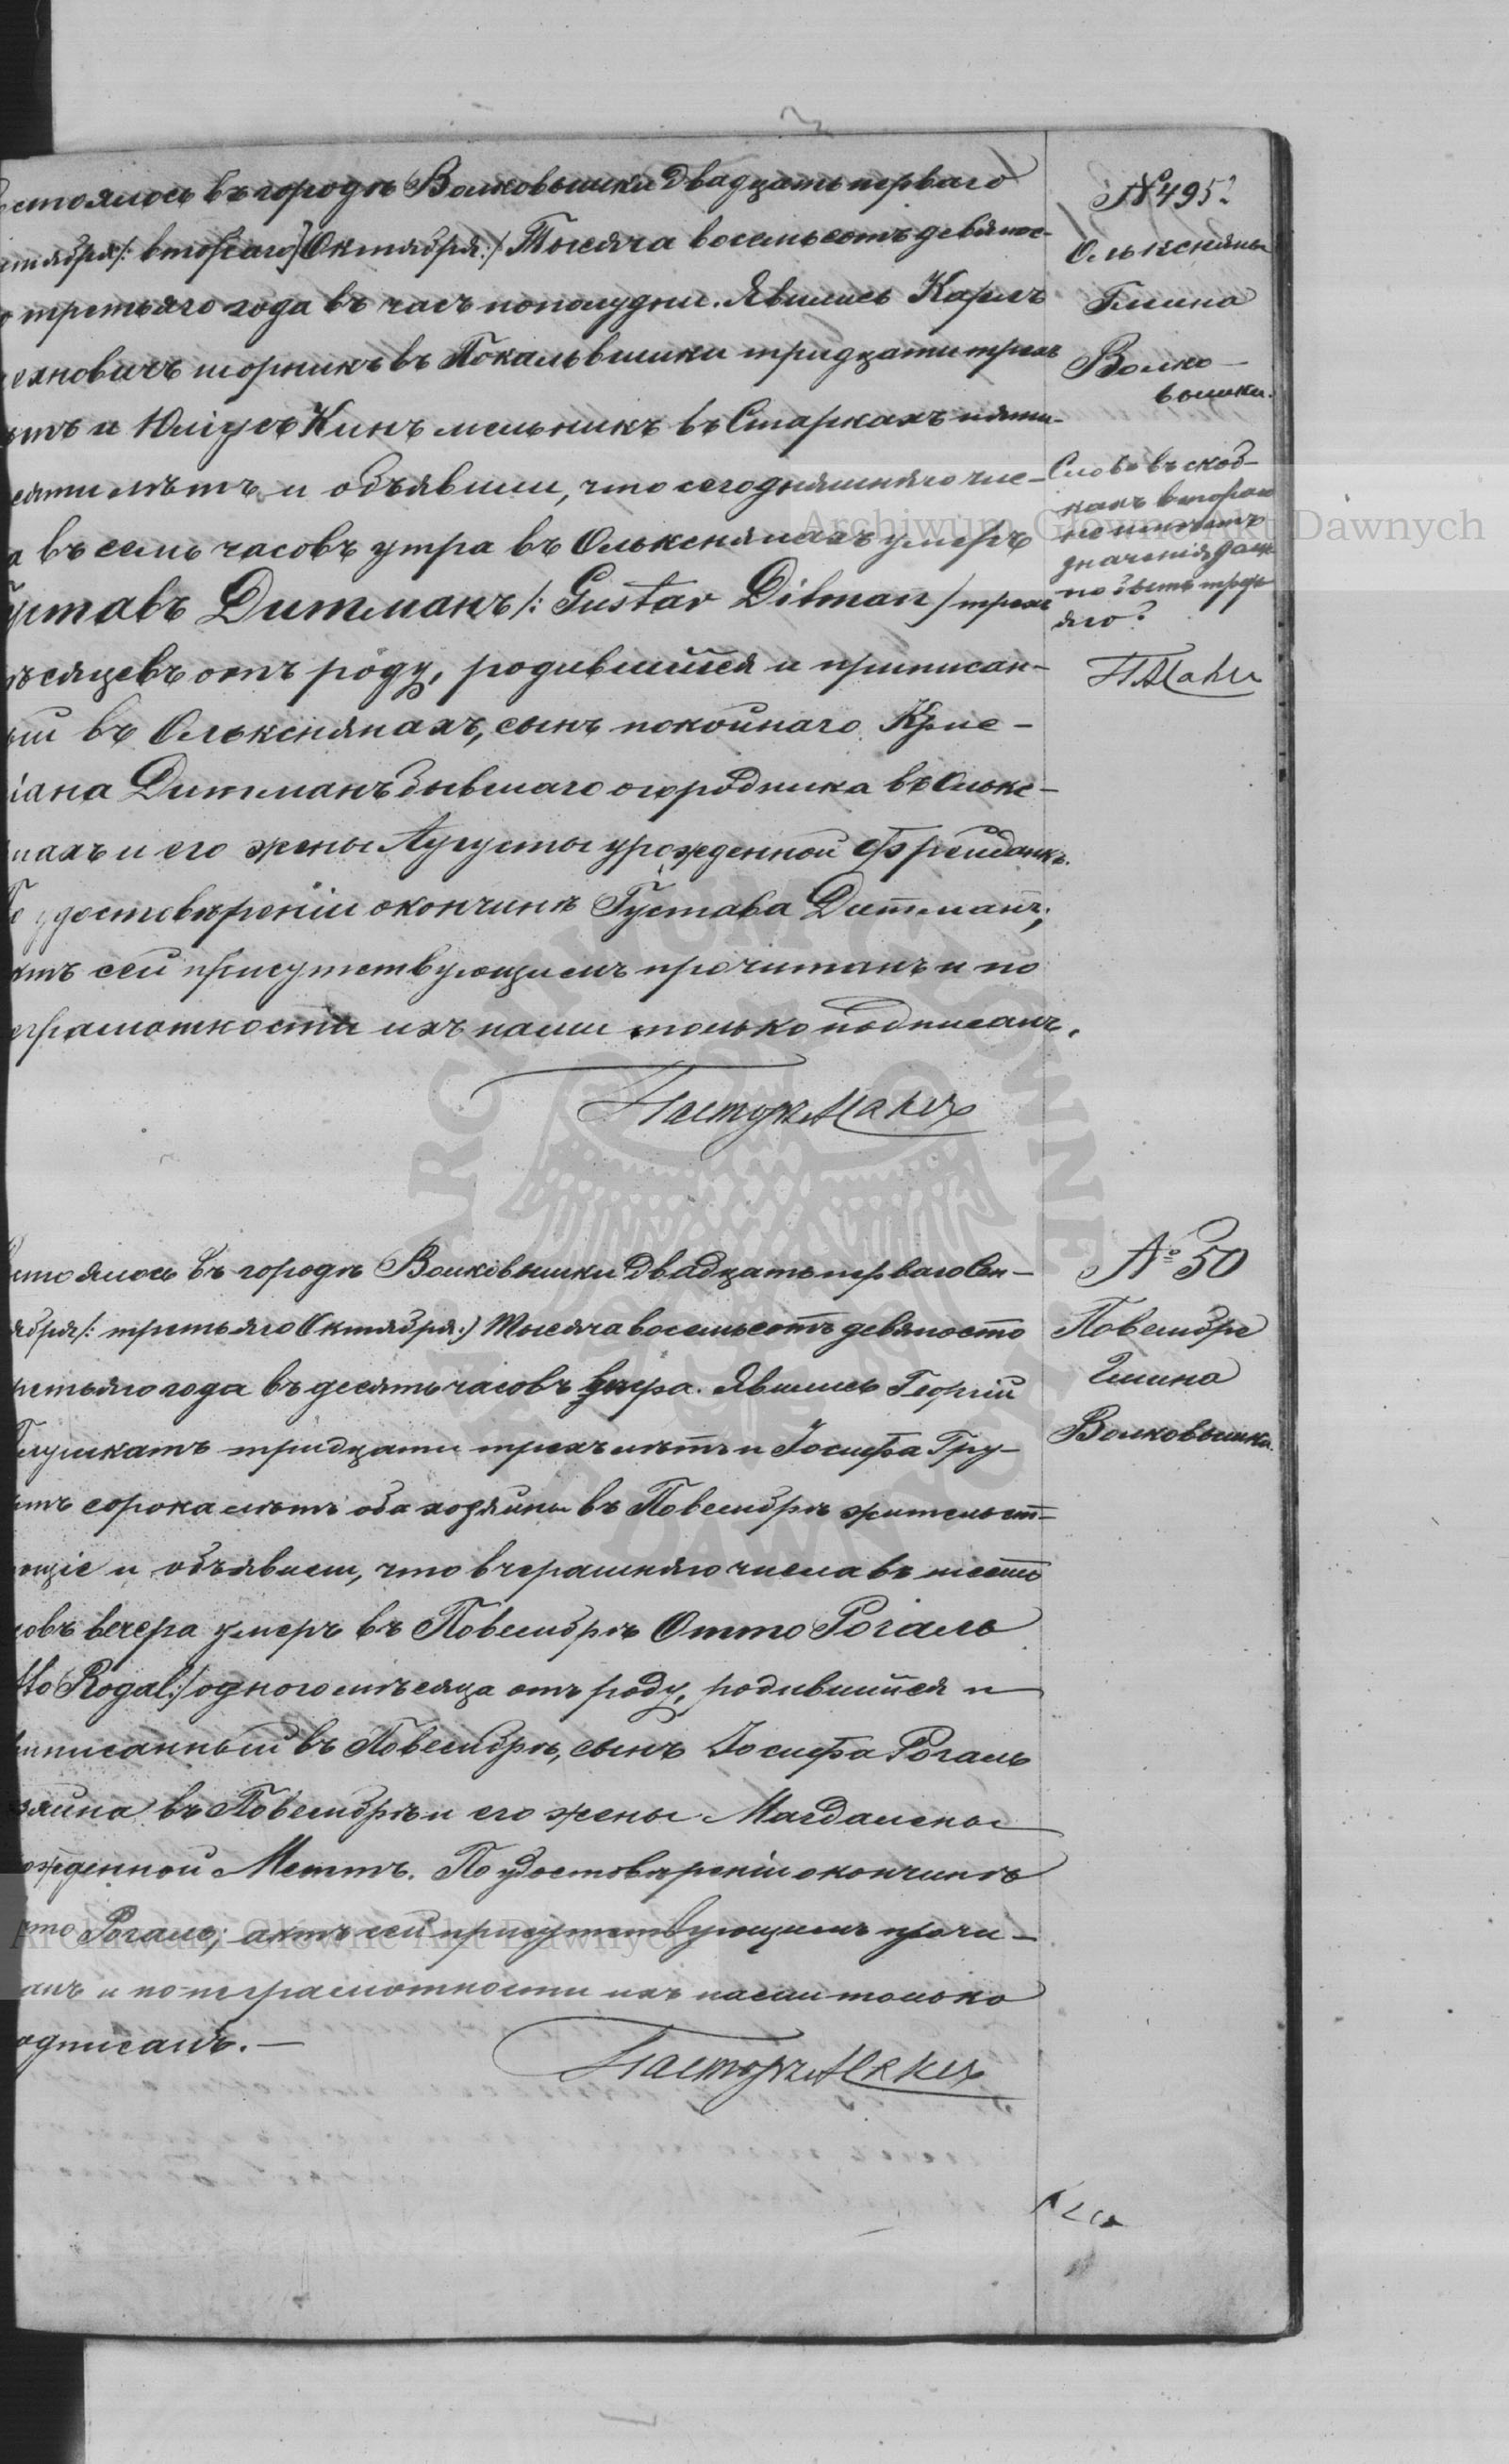 стоялось въ городѣ Волковышки двадцать перваго
тября /: втораго] Октября :/ Тысяча восемьсотъ девянос-
третьяго года въ часъ пополудни. Явились Карлъ
ехновичъ шорникъ въ Покальвишки тридцати трехъ
ѣтъ и Юліусъ Кинъ мельникъ въ Старкахъ пяти-
сяти лѣтъ и объявили, что сегодняшняго чис-
а въ семь часовъ утра въ Ольксняпахъ умеръ
уставъ Дитманъ /: Gustav Ditman / трехъ
ѣсяцевъ отъ роду, родившійся и приписан-
ый въ Ольксняпахъ, сынъ покойнаго Крис-
іана Дитманъ бывшаго огородника въ Олькс-
пахъ и его жены Аугусты урожденной Фрейданкъ.
По удостовѣреніи окончинѣ Густава Дитманъ;
ктъ сей присутствующимъ прочитанъ и по
еграмотности ихъ нами только подписанъ.
Пасторъ
№ 49
Ольксняпы
Гмина
Волко-
вышки.
Слово въ скоб-
кахъ втораго
не имѣетъ
значенія долж-
но быть треть
яго.
стоялось въ городѣ Волковышки двадцать перваго Сен-
тября /: третьяго Октября :/ Тысяча восемьсотъ девяносто
ретьяго года въ десять часовъ утра. Явились Георгій
тридцати трехъ лѣтъ и Іосифа Гру-
тъ сорока лѣтъ оба хозяины въ Повембрѣ жительст-
ющіе и объявили, что вчерашняго числа въ шесть
овъ вечера умеръ въ Повембрѣ Отто Рогаль
tto Rogal :/ одного мѣсяца отъ роду, родившійся и
иписанный въ Повембрѣ, сынъ Іосифа Рогаль
зяина въ Повембрѣ и его жены Магдалены
ожденной Меттъ. По удостовѣреніи окончинѣ
тто Рогаль; актъ сей присутствующимъ прочи-
анъ и по неграмотности ихъ нами только
одписанъ. —
Пасторъ
№ 50
Повембре
Гмина
Волковышки.
Archiwum Główne Akt Dawnych
Archiwum Główne Akt Dawnych
ARCHIWUM GŁÓWNE AKT DAWNYCH